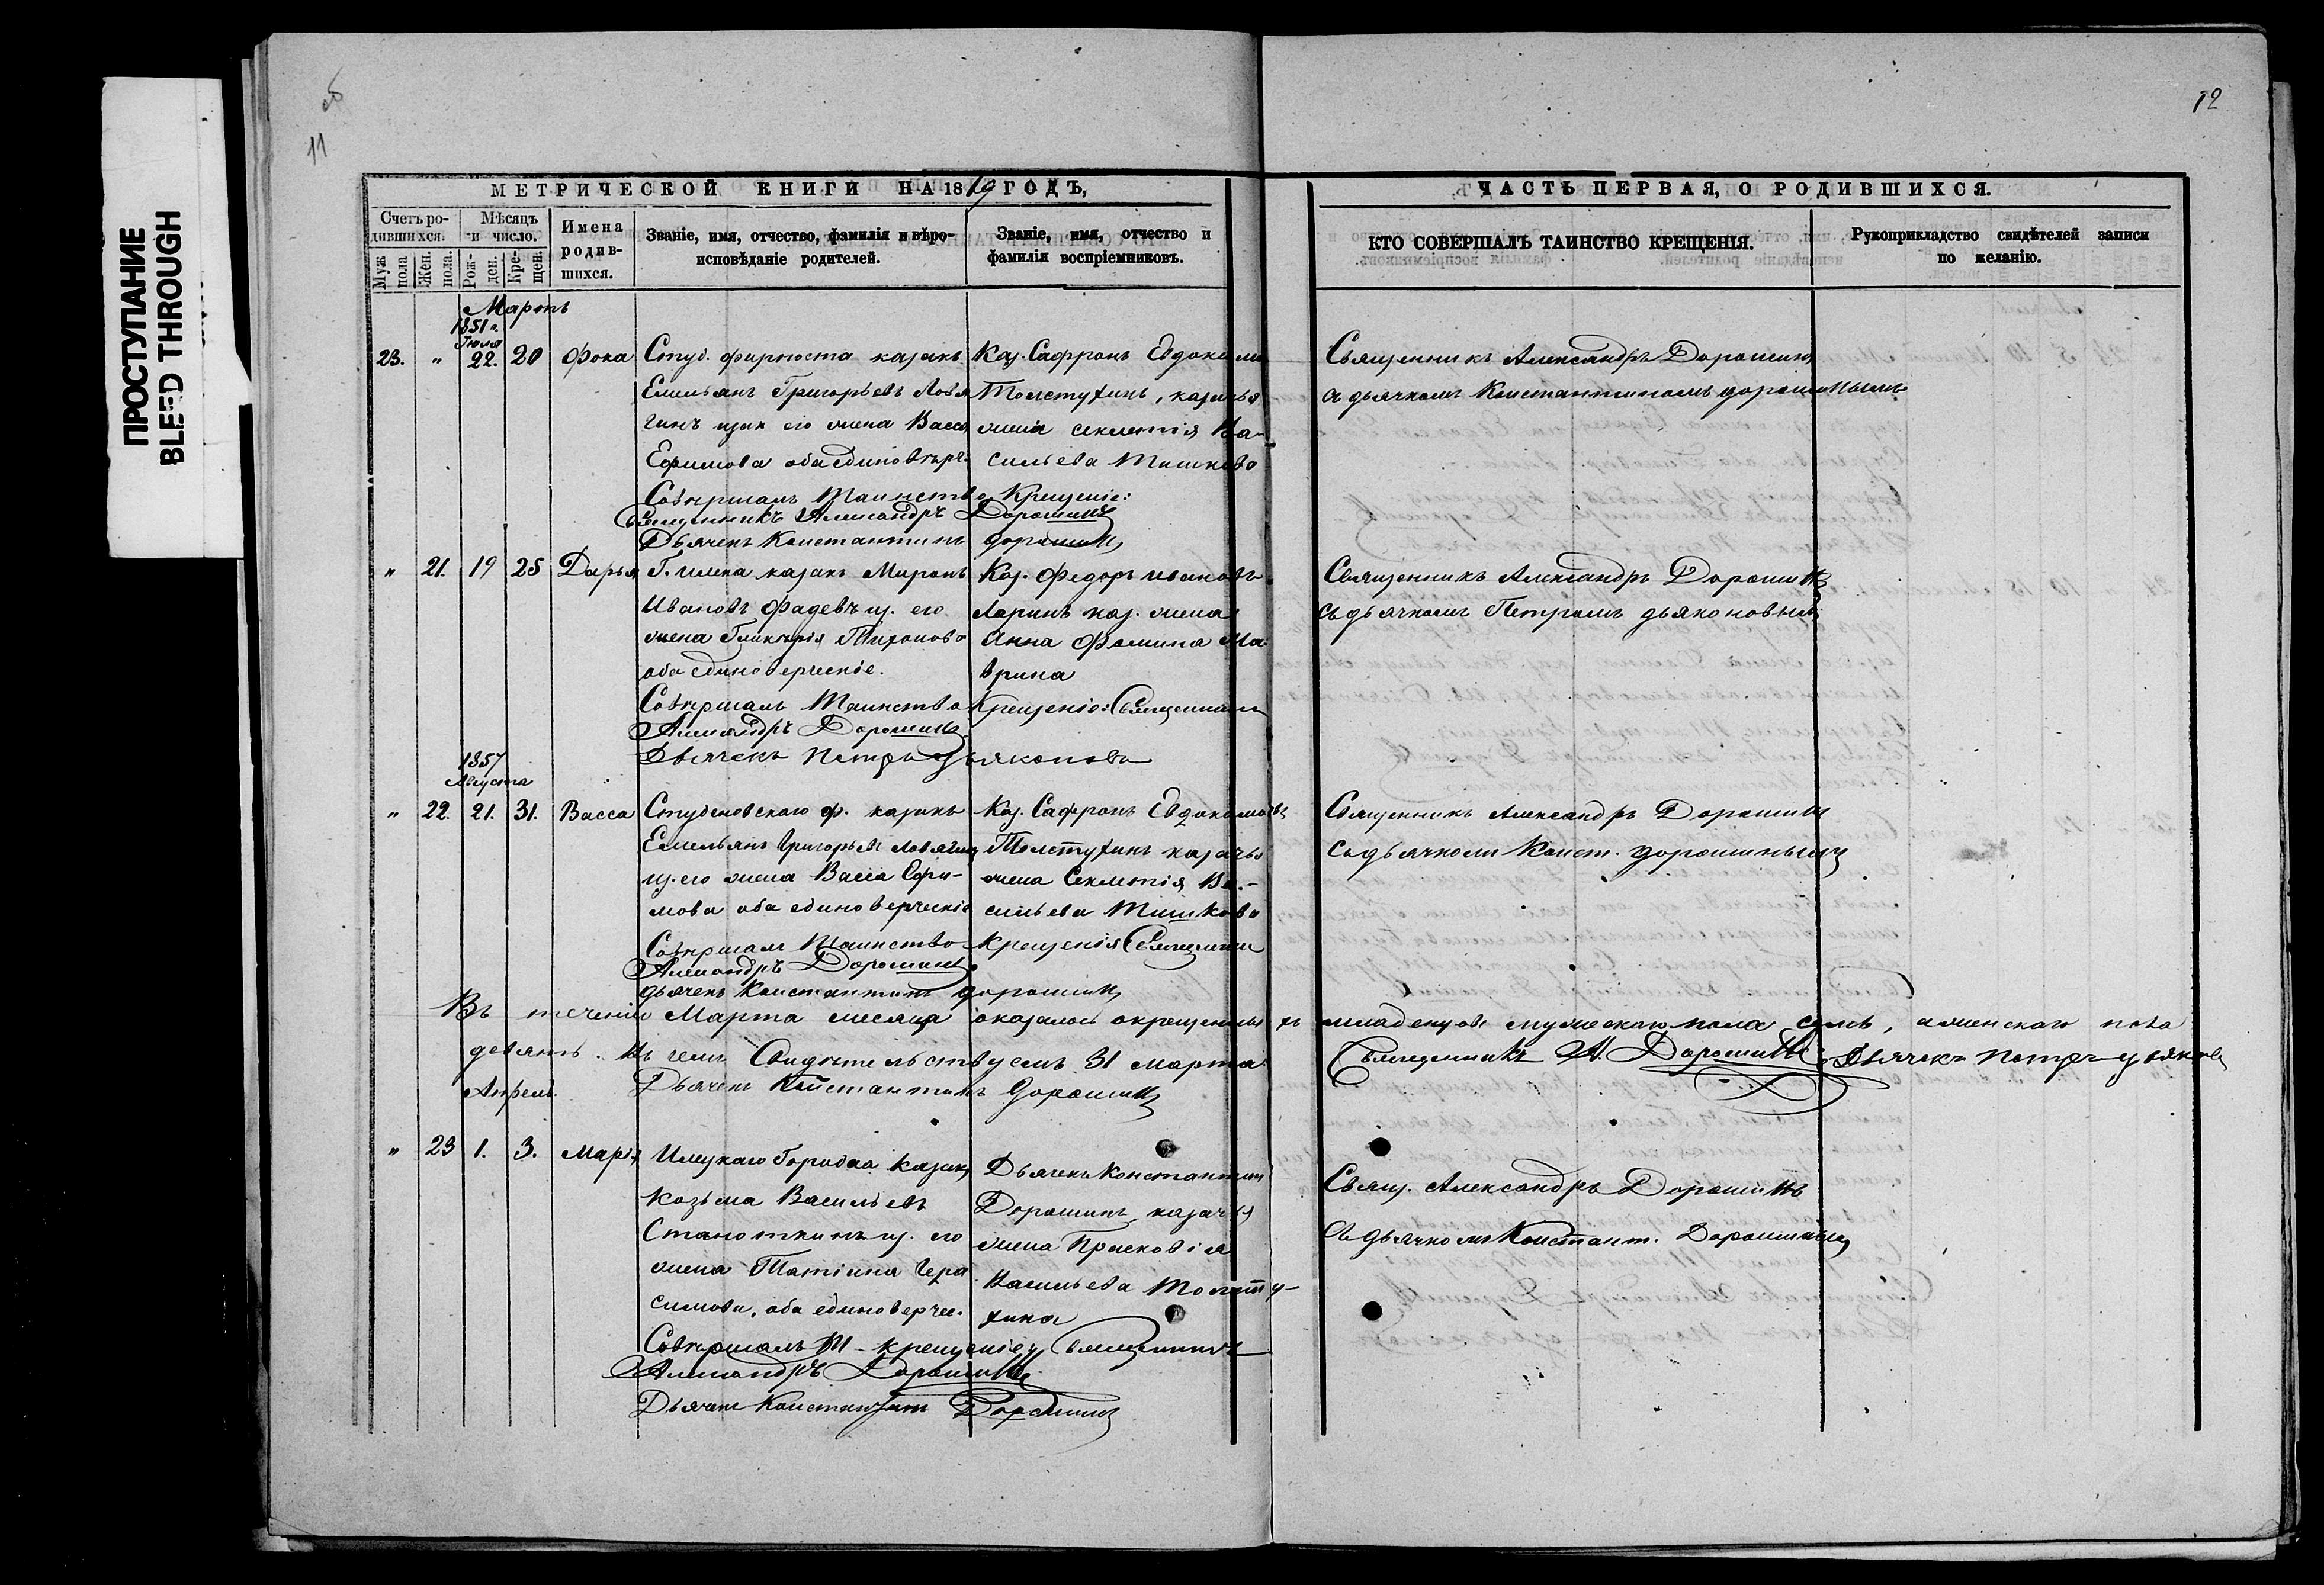 ПРОСТУПАНИЕ
BLEED THROUGH
об
11
12
МЕТРИЧЕСКОЙ КНИГИ НА 18 ГОДЪ,
Счетъ родившихся.
Мѣсяцъ и число.
Имена родившихся.
Званіе, имя, отчество, фамилія и вѣроисповѣданіе родителей.
Званіе, имя, отчество и фамилія воспріемниковъ.
Муж пола
Жен. пола.
Рожден.
Крещен.
ЧАСТЬ ПЕРВАЯ, О РОДИВШИХСЯ.
КТО СОВЕРШАЛЪ ТАИНСТВО КРЕЩЕНІЯ.
Рукоприкладство свидѣтелей записи по желанію.
Мартъ
1851 г.
Іюля
23. " 22. 20 Фока
Студ. форпоста казакъ
Емельянъ Григорьевъ Ловя
гинъ его жена Васса
Ефимова оба единовѣрч.
Каз. Сафронъ Евдокимо
Толстухинъ, казачья
жена Секлетія Ва-
сильева Тишкова
Совершалъ Таинство Крещеніе:
Священникъ Александръ Дорошинъ
Дьячекъ Константинъ Дорошинъ
Священникъ Александръ Дорошинъ
съ дьячкомъ Константиномъ Дорошинымъ
" 21. 19 25 Дарья
Г. Илека казакъ Миронъ
Ивановъ Фадевъ и з. его
жена Гликерія Тихонова
оба единоверческіе.
Каз. Федоръ Ивановъ
Ларинъ каз. жена
Анна Фомина Ма-
врина
Совершалъ Таинство Крещеніе: Священникъ
Александръ Дорошинъ
Дьячекъ Петръ Дьяконовъ
Священникъ Александръ Дорошинъ
съ дьячкомъ Петромъ Дьяконовымъ
1857
Августа
" 22. 21. 31. Васса
Студеновскаго ф. казакъ
Емельянъ Григорьевъ Ловягинъ
з. его жена Васса Ефи-
мова оба единоверческіе
Каз. Сафронъ Евдокимовъ
Толстухинъ казачья
жена Секлетія Ва-
сильева Тишкова
Совершалъ Таинство Крещенія Священникъ
Александръ Дорошинъ
дьячекъ Константинъ Дорошинъ
Священникъ Александръ Дорошинъ
съ дьячкомъ Конст. Дорошинымъ
Въ теченіи Марта месяца оказалось окрещенныхъ младенцовъ мужескаго пола семь, а женскаго пола
девять. Въ чемъ Свидѣтельствуемъ 31 марта Священникъ А. Дорошинъ Дьячекъ Петръ Дьяконовъ
Дьячекъ Константинъ Дорошинъ
Апрель.
" 23 1. 3. Марія
Илецкаго Городка казакъ
Козьма Васильевъ
з. его
жена Татіана Гера
симова, оба единоверчес.
Дьячекъ Константинъ
Дорошинъ, казачья
жена Прасковія
Васильева Толсту-
хина
Совершалъ Т. крещеніе Священникъ
Александръ Дорошинъ
Дьячекъ Константинъ Дорошинъ
Свящ. Александръ Дорошинъ
съ дьячкомъ Констант. Дорошинымъ